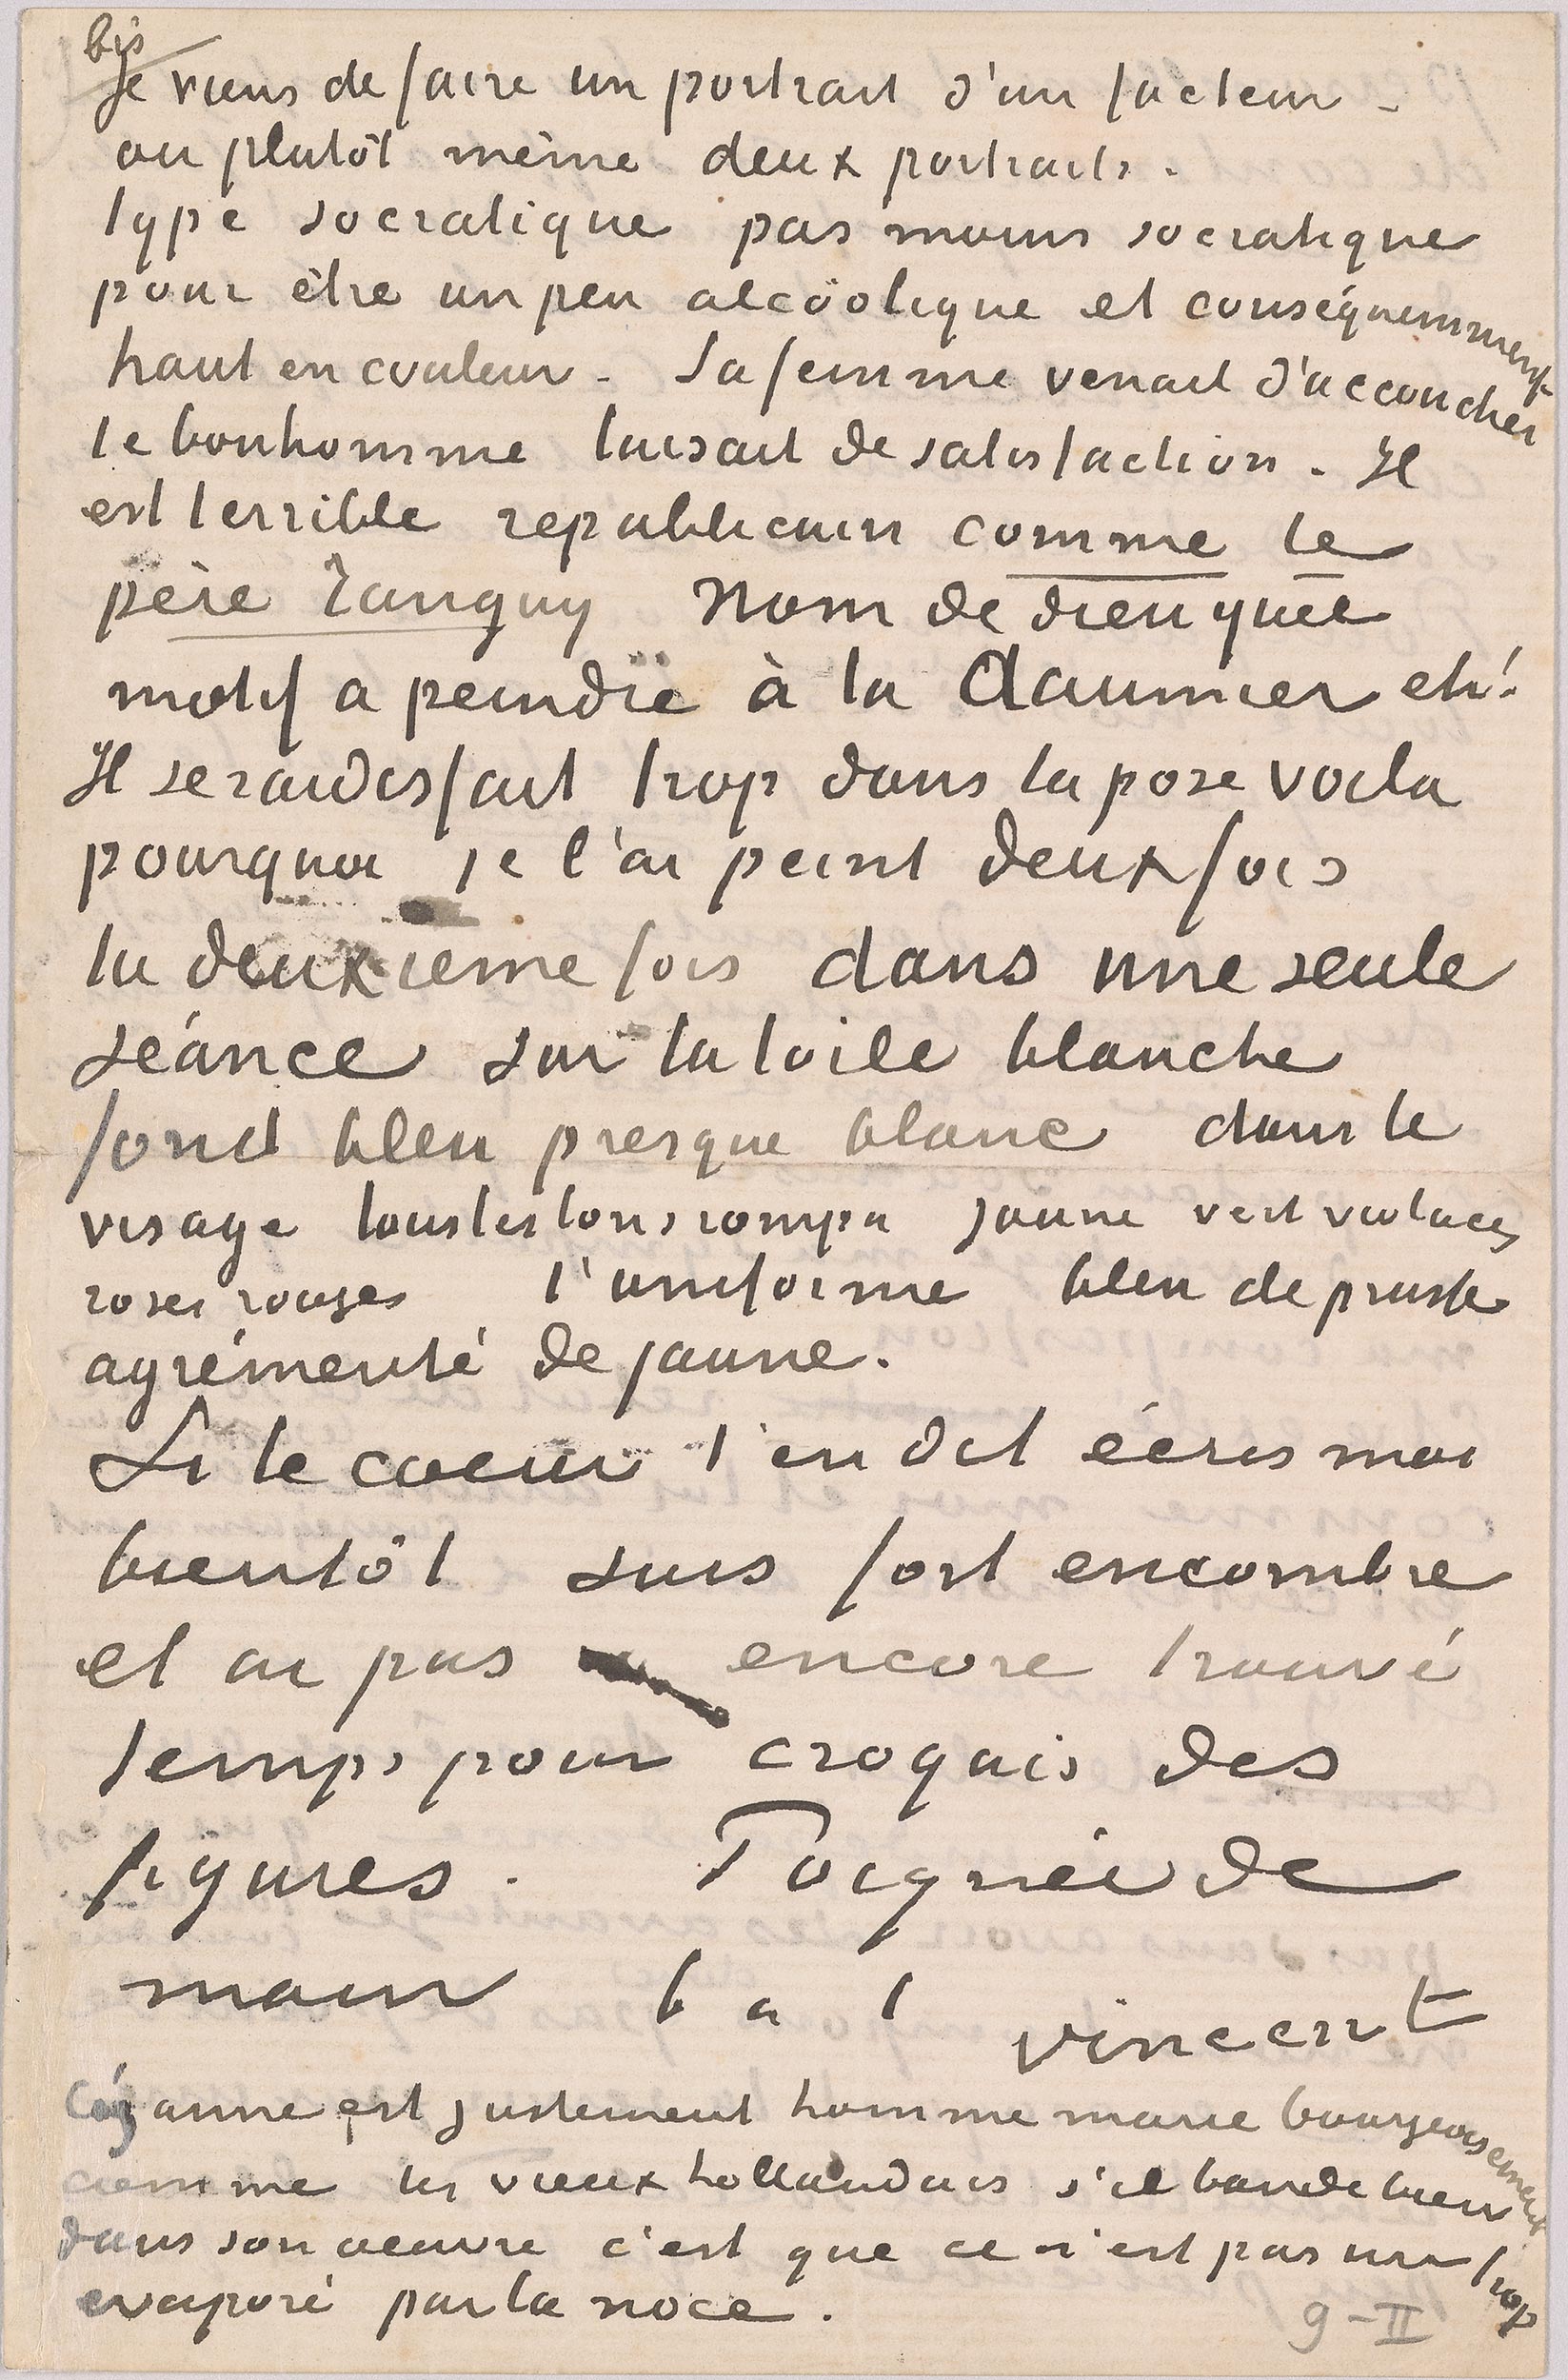 bis
Je viens de faire un portrait d'un facteur -
ou plutôt même deux portraits.
type socratique pas moins socratique
pour être un peu alcöolique et conséquemment
haut en couleur. Sa femme venait d'accoucher
le bonhomme luisait de satisfaction. Il
est terrible republicain comme le
père Tanguy Nom de dieu quel
motif a peindre à la Daumier eh!
Il se raidissait trop dans la pose voila
pourquoi je l'ai peint deux fois
la deuxieme fois dans une seule
séance sur la toile blanche
fond bleu presque blanc dans le
visage tous les tons rompu jaune vert violacés
roses rouges l'uniforme bleu de prusse
agrémenté de jaune.
Si le coeur t'en dit écris moi
bientôt suis fort encombre
et ai pas encore trouvé
temps pour croquis des
figures. Poignée de
main t à t Vincent
Cézanne est justement homme marie bourgeoisement
comme les vieux hollandais s'il bande bien
dans son oeuvre c'est que ce n'est pas un trop
evaporé par la noce.
9-II